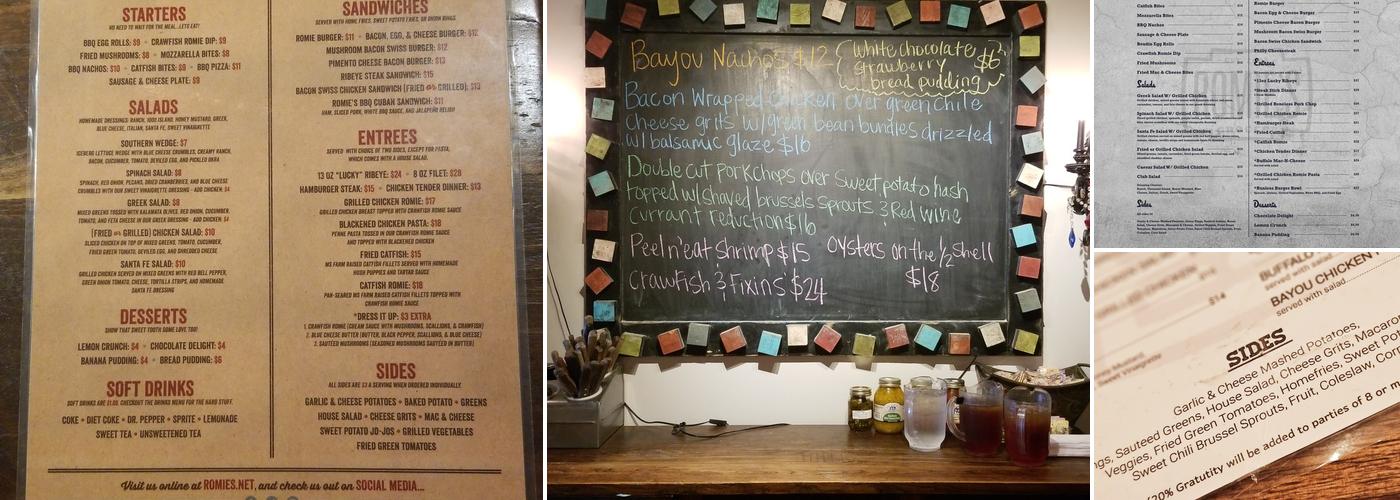 STARTERS
NO NEED TO WAIT FOR THE MEAL...LETS EAT!
BBQ EGG ROLLS: $9 • CRAWFISH ROMIE DIP: $9
FRIED MUSHROOMS: $8 • MOZZARELLA BITES: $8
BBQ NACHOS: $10 • CATFISH BITES: $9 • BBQ PIZZA: $11
SAUSAGE & CHEESE PLATE: $9
SALADS
HOMEMADE DRESSINGS: RANCH, 1000 ISLAND, HONEY MUSTARD, GREEK,
BLUE CHEESE, ITALIAN, SANTA FE, SWEET VINAIGRETTE
SOUTHERN WEDGE: $7
ICEBERG LETTUCE WEDGE WITH BLUE CHEESE CRUMBLES, CREAMY RANCH,
BACON, CUCUMBER, TOMATO, DEVILED EGG, AND PICKLED OKRA
SPINACH SALAD: $8
SPINACH, RED ONION, PECANS, DRIED CRANBERRIES, AND BLUE CHEESE
CRUMBLES WITH OUR SWEET VINAIGRETTE DRESSING - ADD CHICKEN: $4
GREEK SALAD: $8
MIXED GREENS TOSSED WITH KALAMATA OLIVES, RED ONION, CUCUMBER,
TOMATO, AND FETA CHEESE IN OUR GREEK DRESSING - ADD CHICKEN: $4
(FRIED OR GRILLED) CHICKEN SALAD: $10
SLICED CHICKEN ON TOP OF MIXED GREENS, TOMATO, CUCUMBER,
FRIED GREEN TOMATO, DEVILED EGG, AND SHREDDED CHEESE
SANTA FE SALAD: $10
GRILLED CHICKEN SERVED ON MIXED GREENS WITH RED BELL PEPPER,
GREEN ONION TOMATO, CHEESE, TORTILLA STRIPS, AND HOMEMADE
SANTA FE DRESSING
DESSERTS
SHOW THAT SWEET TOOTH SOME LOVE TOO!
LEMON CRUNCH: $4 • CHOCOLATE DELIGHT: $4
BANANA PUDDING: $4 • BREAD PUDDING: $6
SOFT DRINKS
SOFT DRINKS ARE $1.99. CHECKOUT THE DRINKS MENU FOR THE HARD STUFF.
COKE • DIET COKE • DR. PEPPER • SPRITE • LEMONADE
SWEET TEA • UNSWEETENED TEA
SANDWICHES
SERVED WITH HOME FRIES, SWEET POTATO FRIES, OR ONION RINGS.
ROMIE BURGER: $11 • BACON, EGG, & CHEESE BURGER: $12
MUSHROOM BACON SWISS BURGER: $12
PIMENTO CHEESE BACON BURGER: $13
RIBEYE STEAK SANDWICH: $15
BACON SWISS CHICKEN SANDWICH (FRIED OR GRILLED): $13
ROMIE'S BBQ CUBAN SANDWICH: $11
HAM, SLICED PORK, WHITE BBQ SAUCE, AND JALAPEÑO RELISH
ENTREES
SERVED WITH CHOICE OF TWO SIDES, EXCEPT FOR PASTA,
WHICH COMES WITH A HOUSE SALAD.
13 OZ "LUCKY" RIBEYE: $24 • 8 OZ FILET: $28
HAMBURGER STEAK: $15 • CHICKEN TENDER DINNER: $13
GRILLED CHICKEN ROMIE: $17
GRILLED CHICKEN BREAST TOPPED WITH CRAWFISH ROMIE SAUCE
BLACKENED CHICKEN PASTA: $18
PENNE PASTA TOSSED IN OUR CRAWFISH ROMIE SAUCE
AND TOPPED WITH BLACKENED CHICKEN
FRIED CATFISH: $15
MS FARM RAISED CATFISH FILLETS SERVED WITH HOMEMADE
HUSH PUPPIES AND TARTAR SAUCE
CATFISH ROMIE: $18
PAN-SEARED MS FARM RAISED CATFISH FILLETS TOPPED WITH
CRAWFISH ROMIE SAUCE
*DRESS IT UP: $3 EXTRA
1. CRAWFISH ROMIE (CREAM SAUCE WITH MUSHROOMS, SCALLIONS, & CRAWFISH)
2. BLUE CHEESE BUTTER (BUTTER, BLACK PEPPER, SCALLIONS, & BLUE CHEESE)
3. SAUTEED MUSHROOMS (SEASONED MUSHROOMS SAUTEED IN BUTTER)
SIDES
ALL SIDES ARE $3 A SERVING WHEN ORDERED INDIVIDUALLY.
GARLIC & CHEESE POTATOES • BAKED POTATO • GREENS
HOUSE SALAD • CHEESE GRITS • MAC & CHEESE
SWEET POTATO JO-JOS • GRILLED VEGETABLES
FRIED GREEN TOMATOES
Visit us online at ROMIES.NET, and check us out on SOCIAL MEDIA...
Bayou Nachos $12
White chocolate
strawberry
bread pudding
$6
Bacon Wrapped Chicken over green chile
Cheese grits w/green bean bundles drizzled
w/ balsamic glaze $16
Double cut Porkchops over sweet potato hash
topped w/shaved brussels sprouts & Red wine
currant reduction $16
Peel n' eat shrimp $15
Oysters on the 1/2 shell
$18
Crawfish & Fixins' $24
Catfish Bites
Mozzarella Bites
BBQ Nachos
Sausage & Cheese Plate
Boudin Egg Rolls
Crawfish Romie Dip
Fried Mushrooms
Fried Mac & Cheese Bites
Salads
Greek Salad W/ Grilled Chicken
Spinach Salad W/ Grilled Chicken
Santa Fe Salad W/ Grilled Chicken
Fried or Grilled Chicken Salad
Caesar Salad W/ Grilled Chicken
Club Salad
Sides
Romie Burger
Bacon Egg & Cheese Burger
Pimento Cheese Bacon Burger
Mushroom Bacon Swiss Burger
Bacon Swiss Chicken Sandwich
Philly Cheesesteak
Entrees
*13oz Lucky Ribeye
*Steak Stick Dinner
*Grilled Boneless Pork Chop
*Grilled Chicken Romie
*Hamburger Steak
*Fried Catfish
*Catfish Romie
*Chicken Tender Dinner
*Buffalo Mac-N-Cheese
*Grilled Chicken Romie Pasta
*Bunless Burger Bowl
Desserts
Chocolate Delight
Lemon Crunch
Banana Pudding
$14
served with
BAYOU CHICKEN
served with salad
SIDES
Garlic & Cheese Mashed Potatoes,
Sauteed Greens, House Salad, Cheese Grits, Macaroni
Veggies, Fried Green Tomatoes, Homefries, Sweet
Sweet Chili Brussel Sprouts, Fruit, Coleslaw,
(20% Gratutity will be added to parties of 8 or